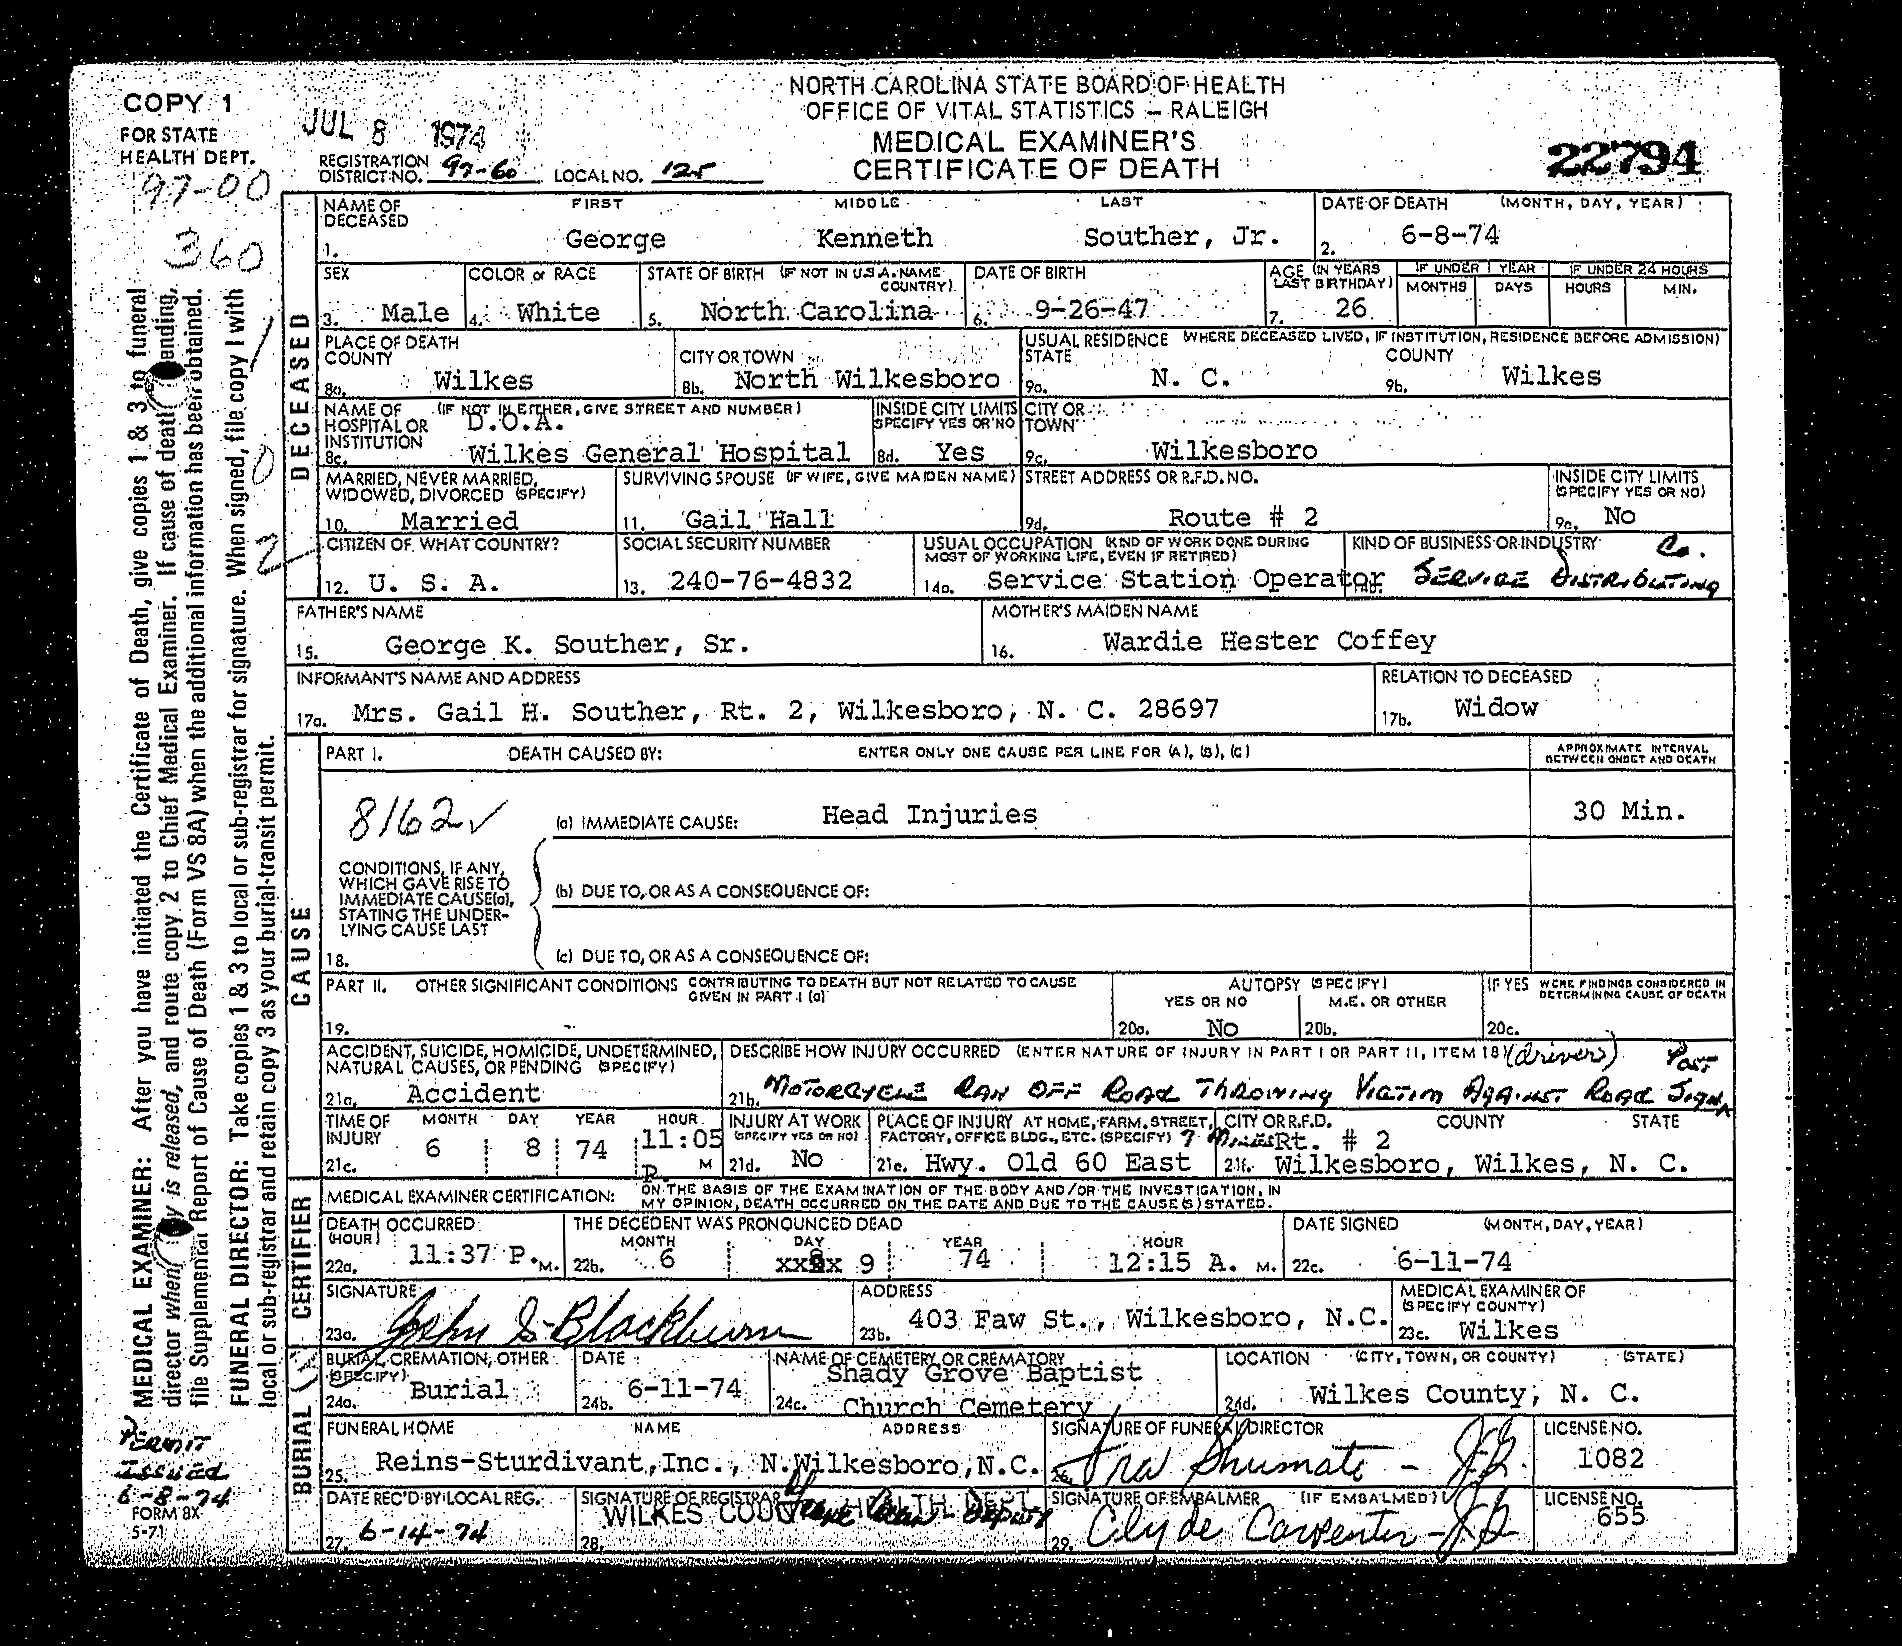 NORTH CAROLINA STATE BOARD OF HEALTH
OFFICE OF VITAL STATISTICS – RALEIGH
MEDICAL EXAMINER'S
CERTIFICATE OF DEATH
COPY 1
FOR STATE
HEALTH DEPT.
97-00
360
JUL 8 1974
REGISTRATION
DISTRICT NO. 97-60 LOCAL NO. 125
22794
DECEASED
NAME OF DECEASED FIRST MIDDLE LAST
1. George Kenneth Souther, Jr.
DATE OF DEATH (MONTH, DAY, YEAR)
2. 6-8-74
SEX
3. Male
COLOR or RACE
4. White
STATE OF BIRTH (IF NOT IN U.S.A. NAME COUNTRY)
5. North Carolina
DATE OF BIRTH
6. 9-26-47
AGE (IN YEARS LAST BIRTHDAY)
7. 26
IF UNDER 1 YEAR
MONTHS DAYS
IF UNDER 24 HOURS
HOURS MIN.
PLACE OF DEATH
COUNTY
8a. Wilkes
CITY OR TOWN
8b. North Wilkesboro
USUAL RESIDENCE (WHERE DECEASED LIVED, IF INSTITUTION, RESIDENCE BEFORE ADMISSION)
STATE
9a. N. C.
COUNTY
9b. Wilkes
NAME OF HOSPITAL OR INSTITUTION (IF NOT IN EITHER, GIVE STREET AND NUMBER)
D.O.A.
8c. Wilkes General Hospital
INSIDE CITY LIMITS
SPECIFY YES OR NO
8d. Yes
CITY OR TOWN
9c. Wilkesboro
MARRIED, NEVER MARRIED,
WIDOWED, DIVORCED (SPECIFY)
10. Married
SURVIVING SPOUSE (IF WIFE, GIVE MAIDEN NAME)
11. Gail Hall
STREET ADDRESS OR R.F.D. NO.
9d. Route # 2
INSIDE CITY LIMITS
(SPECIFY YES OR NO)
9e. No
CITIZEN OF WHAT COUNTRY?
12. U. S. A.
SOCIAL SECURITY NUMBER
13. 240-76-4832
USUAL OCCUPATION (KIND OF WORK DONE DURING
MOST OF WORKING LIFE, EVEN IF RETIRED)
14a. Service Station Operator
KIND OF BUSINESS OR INDUSTRY
14b. Service Distributing Co.
FATHER'S NAME
15. George K. Souther, Sr.
MOTHER'S MAIDEN NAME
16. Wardie Hester Coffey
INFORMANT'S NAME AND ADDRESS
17a. Mrs. Gail H. Souther, Rt. 2, Wilkesboro, N. C. 28697
RELATION TO DECEASED
17b. Widow
CAUSE
PART I. DEATH CAUSED BY: ENTER ONLY ONE CAUSE PER LINE FOR (A), (B), (C)
APPROXIMATE INTERVAL
BETWEEN ONSET AND DEATH
8162 ✓
(a) IMMEDIATE CAUSE: Head Injuries
30 Min.
CONDITIONS, IF ANY,
WHICH GAVE RISE TO
IMMEDIATE CAUSE(a),
STATING THE UNDER-
LYING CAUSE LAST
18.
(b) DUE TO, OR AS A CONSEQUENCE OF:
(c) DUE TO, OR AS A CONSEQUENCE OF:
PART II. OTHER SIGNIFICANT CONDITIONS CONTRIBUTING TO DEATH BUT NOT RELATED TO CAUSE
GIVEN IN PART I (a)
19.
AUTOPSY (SPECIFY)
YES OR NO M.E. OR OTHER
20a. No 20b.
IF YES WERE FINDINGS CONSIDERED IN
DETERMINING CAUSE OF DEATH
20c.
ACCIDENT, SUICIDE, HOMICIDE, UNDETERMINED,
NATURAL CAUSES, OR PENDING (SPECIFY)
21a. Accident
DESCRIBE HOW INJURY OCCURRED (ENTER NATURE OF INJURY IN PART I OR PART II, ITEM 18) (driver)
21b. Motorcycle Ran Off Road Throwing Victim Against Road Sign Post
TIME OF INJURY MONTH DAY YEAR HOUR
21c. 6 8 74 11:05 P. M
INJURY AT WORK
(SPECIFY YES OR NO)
21d. No
PLACE OF INJURY AT HOME, FARM, STREET,
FACTORY, OFFICE BLDG., ETC. (SPECIFY) 7 Miles
21e. Hwy. Old 60 East
CITY OR R.F.D. COUNTY STATE
Rt. # 2
21f. Wilkesboro, Wilkes, N. C.
CERTIFIER
MEDICAL EXAMINER CERTIFICATION: ON THE BASIS OF THE EXAMINATION OF THE BODY AND/OR THE INVESTIGATION, IN
MY OPINION, DEATH OCCURRED ON THE DATE AND DUE TO THE CAUSE(S) STATED.
DEATH OCCURRED
(HOUR)
22a. 11:37 P. M.
THE DECEDENT WAS PRONOUNCED DEAD
MONTH DAY YEAR HOUR
22b. 6 9 74 12:15 A. M.
DATE SIGNED (MONTH, DAY, YEAR)
22c. 6-11-74
SIGNATURE
23a. John S Blackburn
ADDRESS
23b. 403 Faw St., Wilkesboro, N.C.
MEDICAL EXAMINER OF
(SPECIFY COUNTY)
23c. Wilkes
BURIAL
BURIAL, CREMATION, OTHER
(SPECIFY)
24a. Burial
DATE
24b. 6-11-74
NAME OF CEMETERY OR CREMATORY
24c. Shady Grove Baptist
Church Cemetery
LOCATION (CITY, TOWN, OR COUNTY) (STATE)
24d. Wilkes County, N. C.
FUNERAL HOME NAME ADDRESS
25. Reins-Sturdivant, Inc., N. Wilkesboro, N.C.
SIGNATURE OF FUNERAL DIRECTOR
26. Ira Shumate -
LICENSE NO.
1082
DATE REC'D BY LOCAL REG.
27. 6-14-74
SIGNATURE OF REGISTRAR
28. WILKES COUNTY HEALTH DEPT.
Deputy
SIGNATURE OF EMBALMER (IF EMBALMED)
29. Clyde Carpenter -
LICENSE NO.
655
MEDICAL EXAMINER: After you have initiated the Certificate of Death, give copies 1 & 3 to funeral
director when body is released, and route copy 2 to Chief Medical Examiner. If cause of death pending,
file Supplemental Report of Cause of Death (Form VS 8A) when the additional information has been obtained.
FUNERAL DIRECTOR: Take copies 1 & 3 to local or sub-registrar for signature. When signed, file copy 1 with
local or sub-registrar and retain copy 3 as your burial-transit permit.
Permit
Issued
6-8-74
FORM 8X
5-71